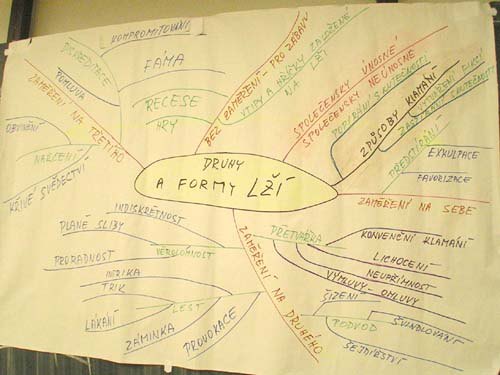 DRUHY
A FORMY LŽÍ
KOMPROMITOVÁNÍ
DISKREDITACE
FÁMA
POMLUVA
ZAMĚŘENÍ NA TŘETÍHO
RECESE
HRY
OBVINĚNÍ
NARČENÍ
KŘIVÉ SVĚDECTVÍ
BEZ ZAMĚŘENÍ - PRO ZÁBAVU
VTIPY A HŘÍČKY ZALOŽENÉ
NA LŽI
SPOLEČENSKY ÚNOSNÉ
SPOLEČENSKY NEÚNOSNÉ
POPÍRÁNÍ SKUTEČNOSTI
ZPŮSOBY KLAMÁNÍ
VYTVOŘENÍ FIKCÍ
ZASTŘENÍ SKUTEČNOSTI
PŘEDSTÍRÁNÍ
EXKULPACE
FAVORIZACE
ZAMĚŘENÍ NA SEBE
INDISKRÉTNOST
PLANÉ SLIBY
VĚROLOMNOST
PRORADNOST
INTRIKA
TRIK
LEST
LÁKÁNÍ
ZÁMINKA
PROVOKACE
ZAMĚŘENÍ NA DRUHÉHO
PŘETVÁŘKA
KONVENČNÍ KLAMÁNÍ
LICHOCENÍ
NEUPŘÍMNOST
VÝMLUVY - OMLUVY
ŠIZENÍ
PODVOD
ŠVINDLOVÁNÍ
ŠEJDÍŘSTVÍ